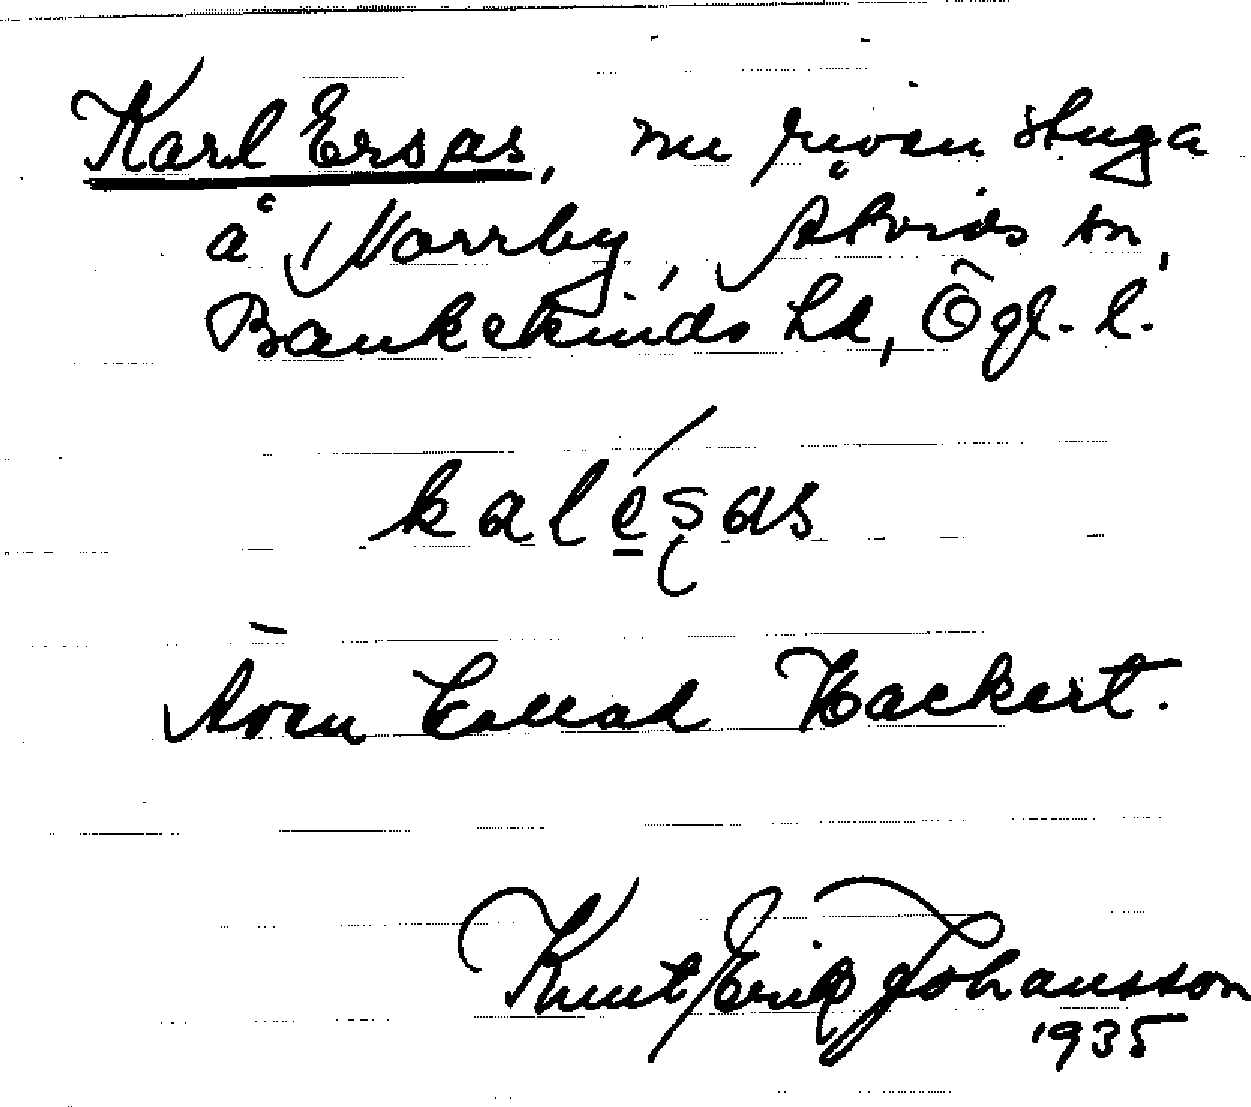 Karl Ersas, nu riven stuga
å Norrby, Åtvids sn,
Bankekinds hd, Ögl. l.
kalésas
Även kallad Hackert.
Knut Erik Johansson
1935